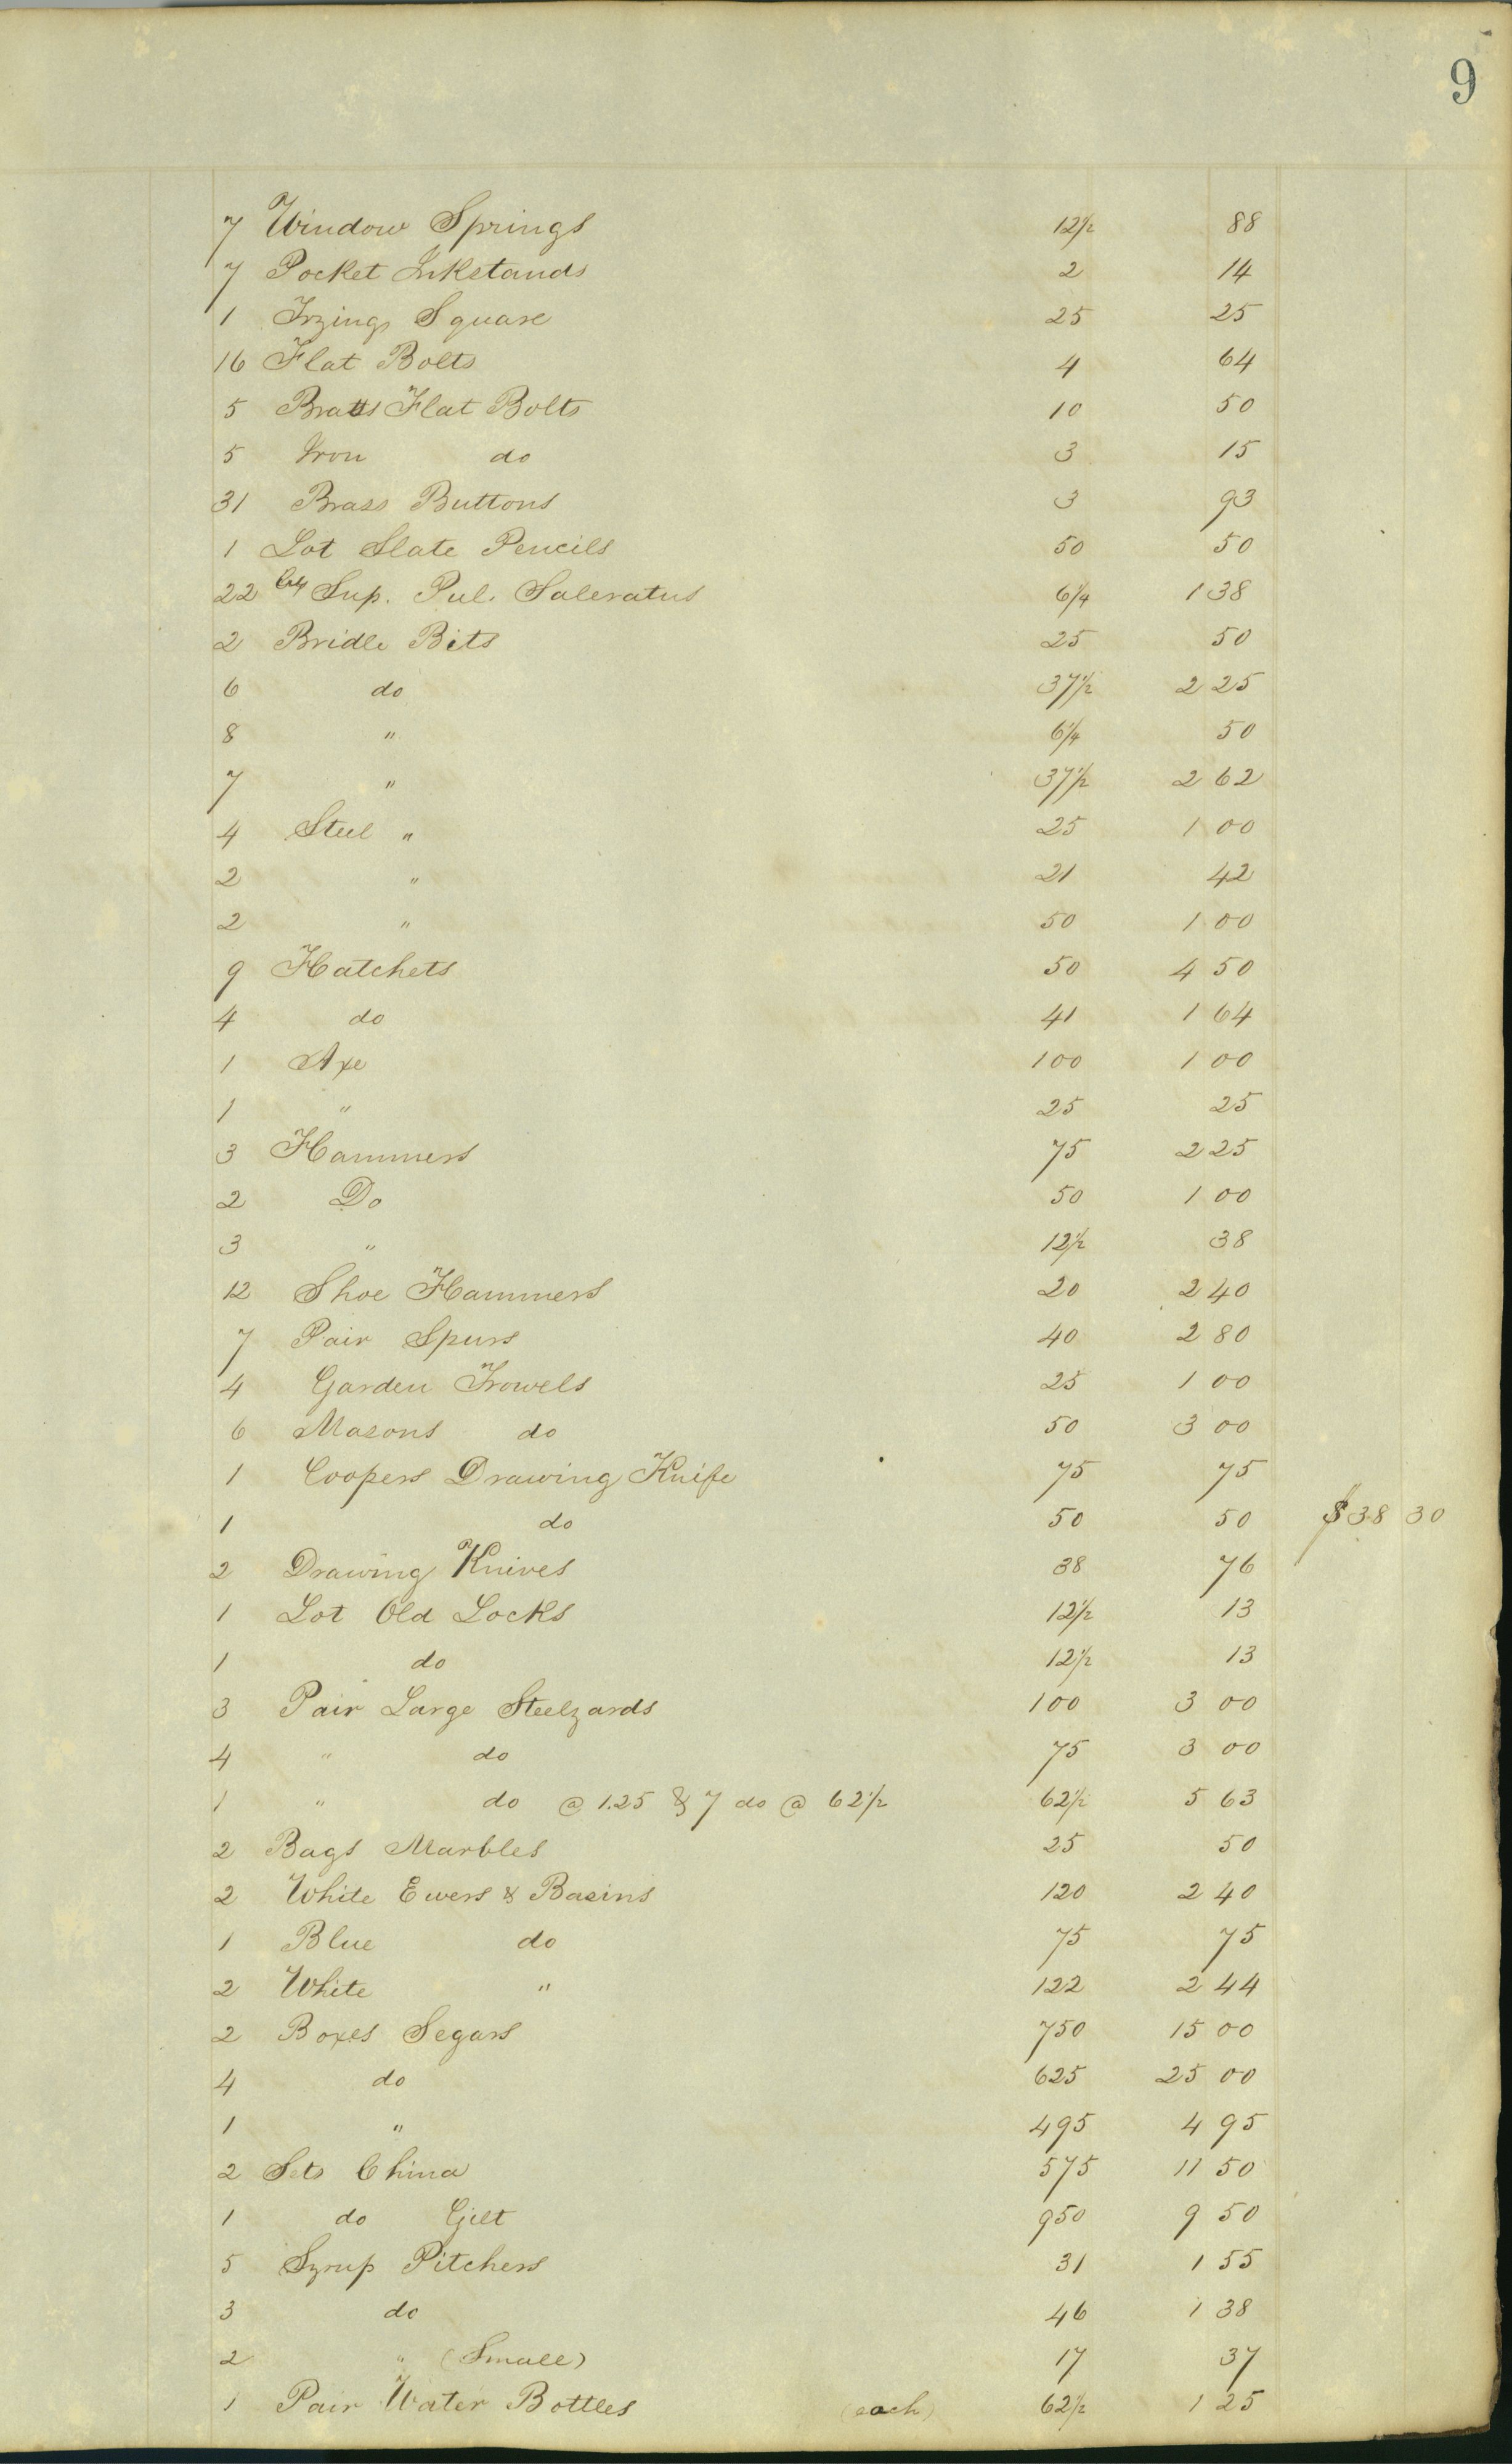 9
7 Window Springs 12½ 88
7 Pocket Inkstands 2 14
1 Square 25 25
16 Flat Bolts 4 64
5 Brass Flat Bolts 10 50
5 Iron do 3 15
31 Brass Buttons 3 93
1 Lot Slate Pencils 50 50
22 Sup. Pul. Saleratus 6¼ 1 38
2 Bridle Bits 25 50
6 do 37½ 2 25
8 " 6¼ 50
7 " 37½ 2 62
4 Steel " 25 1 00
2 " 21 42
2 " 50 1 00
9 Hatchets 50 4 50
4 do 41 1 64
1 Axe 100 1 00
1 " 25 25
3 Hammers 75 2 25
2 Do 50 1 00
3 " 12½ 38
12 Shoe Hammers 20 2 40
7 Pair Spurs 40 2 80
4 Garden Trowels 25 1 00
6 Masons do 50 3 00
1 Coopers Drawing Knife 75 75
1 do 50 50 $38 30
2 Drawing Knives 38 76
1 Lot Old Locks 12½ 13
1 do 12½ 13
3 Pair Large Steelyards 100 3 00
4 " do 75 3 00
1 " do @ 1.25 & 7 do @ 62½ 62½ 5 63
2 Bags Marbles 25 50
2 White Ewers & Basins 120 2 40
1 Blue do 75 75
2 White " 122 2 44
2 Boxes Segars 750 15 00
4 do 625 25 00
1 " 495 4 95
2 Sets China 575 11 50
1 do Gilt 950 9 50
5 Syrup Pitchers 31 1 55
3 do 46 1 38
2 " (Small) 17 37
1 Pair Water Bottles (each) 62½ 1 25